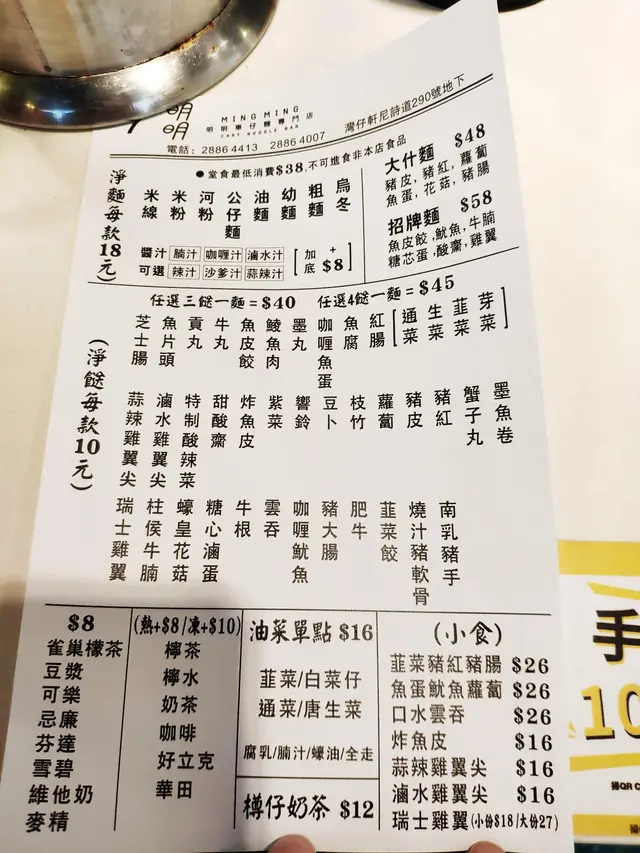 明明
MING MING
明明車仔麵專門店
CART NOODLE BAR
電話：2886 4413  2886 4007
灣仔軒尼詩道290號地下
●堂食最低消費$38,不可進食非本店食品
淨麵每款18元
米線
米粉
河粉
公仔麵
油麵
幼麵
粗麵
烏冬
醬汁可選
腩汁 咖喱汁 滷水汁
辣汁 沙爹汁 蒜辣汁
[加底+$8]
大什麵 $48
豬皮,豬紅,蘿蔔
魚蛋,花菇,豬腸
招牌麵 $58
魚皮餃,魷魚,牛腩
糖芯蛋,酸齋,雞翼
任選三餸一麵=$40 任選4餸一麵=$45
(淨餸每款10元)
芝士腸
魚片頭
貢丸
牛丸
魚皮餃
鯪魚肉
墨丸
咖喱魚蛋
魚腐
紅腸
[通菜 生菜 韮菜 芽菜]
蒜辣雞翼尖
滷水雞翼尖
特制酸辣菜
甜酸齋
炸魚皮
紫菜
響鈴
豆卜
枝竹
蘿蔔
豬皮
豬紅
蟹子丸
墨魚卷
瑞士雞翼
柱侯牛腩
蠔皇花菇
糖心滷蛋
牛根
雲吞
咖喱魷魚
豬大腸
肥牛
韮菜餃
燒汁豬軟骨
南乳豬手
$8
雀巢檬茶
豆漿
可樂
忌廉
芬達
雪碧
維他奶
麥精
(熱+$8/凍+$10)
檸茶
檸水
奶茶
咖啡
好立克
華田
油菜單點 $16
韮菜/白菜仔
通菜/唐生菜
腐乳/腩汁/蠔油/全走
樽仔奶茶 $12
(小食)
韮菜豬紅豬腸 $26
魚蛋魷魚蘿蔔 $26
口水雲吞 $26
炸魚皮 $16
蒜辣雞翼尖 $16
滷水雞翼尖 $16
瑞士雞翼(小份$18/大份27)
手
10
掃QR C